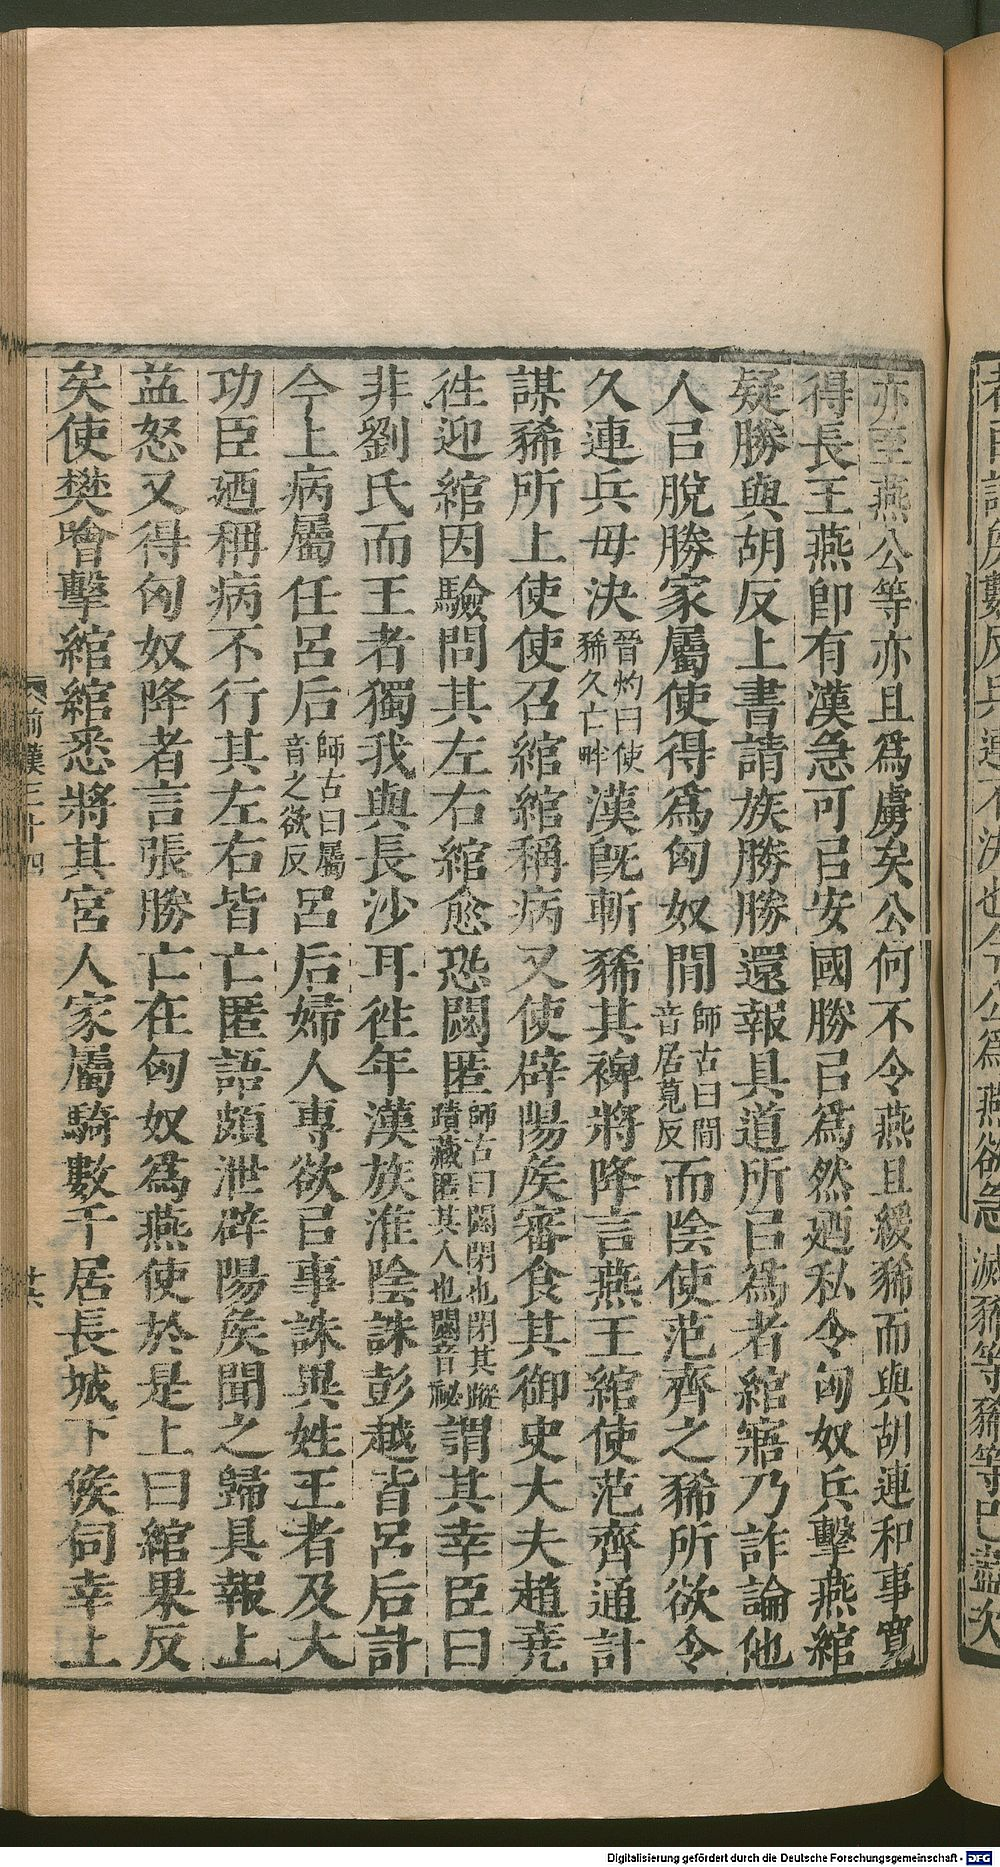 亦至燕公等亦且爲虜矣公何不令燕且緩豨而與胡連和事寬
得長王燕卽有漢急可㠯安國勝㠯爲然迺私令匈奴兵擊燕綰
疑勝與胡反上書請族勝勝還報具道所㠯爲者綰寤乃詐論他
人㠯脫勝家屬使得爲匈奴閒師古曰閒音居莧反而陰使范齊之豨所欲令
久連兵毋決晉灼曰使豨久亡畔漢旣斬豨其裨將降言燕王綰使范齊通計
謀豨所上使使召綰綰稱病又使辟陽矦審食其御史大夫趙堯
徃迎綰因驗問其左右綰愈恐閟匿師古曰閟閉也閉其蹤蹟藏匿其人也閟音祕謂其幸臣曰
非劉氏而王者獨我與長沙耳徃年漢族淮陰誅彭越皆呂后計
今上病屬任呂后師古曰屬音之欲反呂后婦人專欲㠯事誅異姓王者及大
功臣迺稱病不行其左右皆亡匿語頗泄辟陽矦聞之歸具報上
益怒又得匈奴降者言張勝亡在匈奴爲燕使於是上曰綰果反
矣使樊噲擊綰綰悉將其宮人家屬騎數千居長城下候伺幸上
前漢三十四
廿六
Digitalisierung gefördert durch die Deutsche Forschungsgemeinschaft - DFG